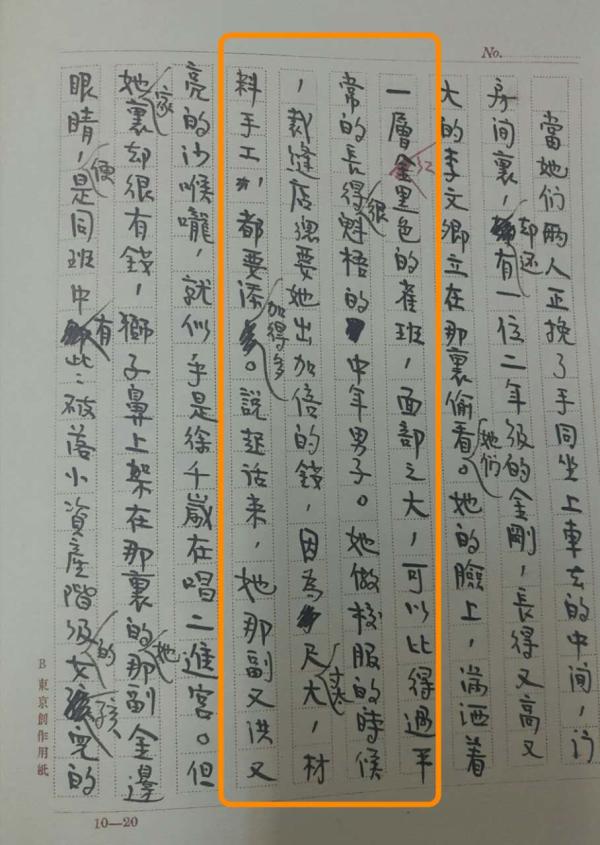 No.
當她们兩人正挽了手同坐上車去的中间，门
房间裏，却还有一位二年级的金剛，長得又高又
大的李文卿立在那裏偷看她们。她的臉上，满洒着
一層红黑色的雀斑，面部之大，可以比得過平
常的長得很魁梧的中年男子。她做校服的時候
，裁縫店總要她出加倍的錢，因為尺寸大，材
料手工，都要添加得多。說起話来，她那副又洪又
亮的沙喉嚨，就似乎是徐千歲在唱二進宮。但
她家裏却很有錢，獅子鼻上架在那裏的她那副金邊
眼睛，便是同班中有些破落小資產階级的女孩兒的
B 東京創作用紙
10—20